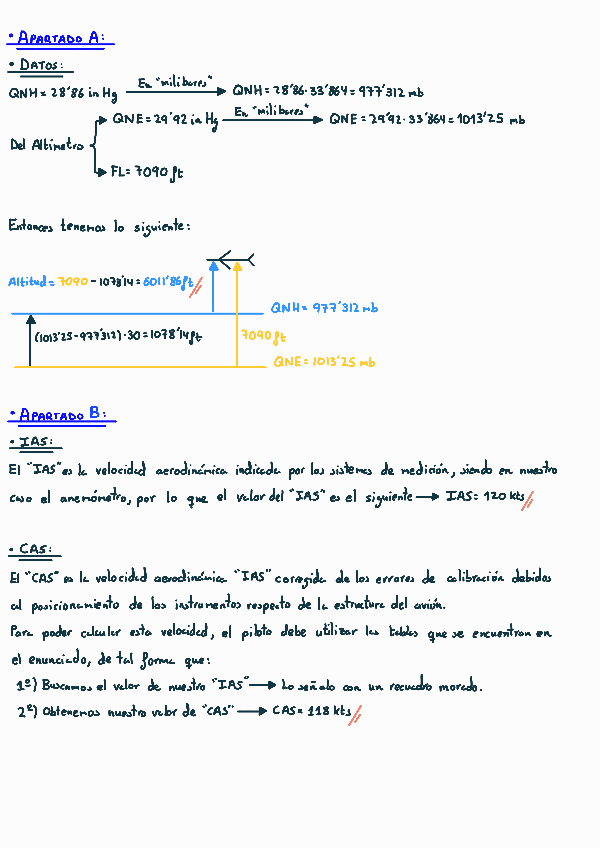 • APARTADO A:
• DATOS:
QNH = 28'86 in Hg En "milibares" QNH = 28'86·33'864 = 977'312 mb
QNE = 29'92 in Hg En "milibares" QNE = 29'92·33'864 = 1013'25 mb
Del Altímetro
FL = 7090 ft
Entonces tenemos lo siguiente:
Altitud = 7090 - 1078'14 = 6011'86 ft
QNH = 977'312 mb
(1013'25 - 977'312)·30 = 1078'14 ft 7090 ft
QNE = 1013'25 mb
• APARTADO B:
• IAS:
El "IAS" es la velocidad aerodinámica indicada por los sistemas de medición, siendo en nuestro
caso el anemómetro, por lo que el valor del "IAS" es el siguiente → IAS = 120 kts
• CAS:
El "CAS" es la velocidad aerodinámica "IAS" corregida de los errores de calibración debidos
al posicionamiento de los instrumentos respecto de la estructura del avión.
Para poder calcular esta velocidad, el piloto debe utilizar las tablas que se encuentran en
el enunciado, de tal forma que:
1º) Buscamos el valor de nuestro "IAS" → Lo señalo con un recuadro morado.
2º) Obtenemos nuestro valor de "CAS" → CAS = 118 kts